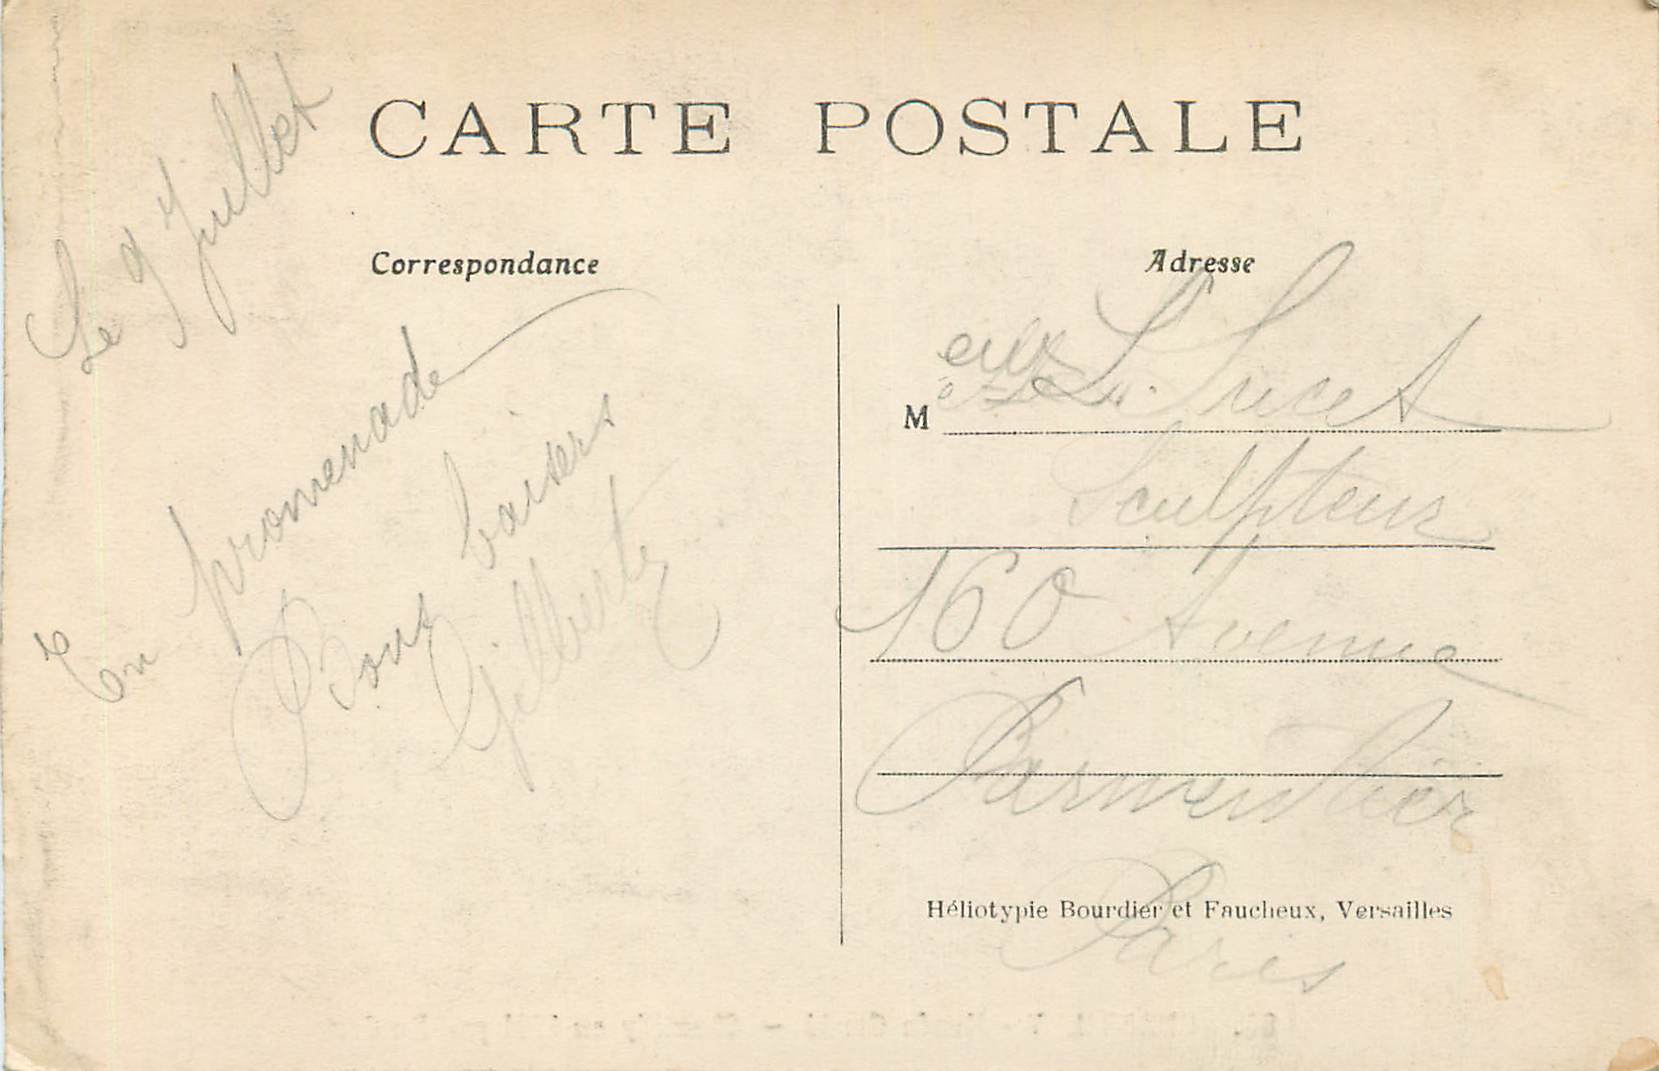 CARTE POSTALE
Correspondance
Le 9 Juillet
En promenade
Bons baisers
Gilberte
Adresse
M
Sculpteur
160 Avenue
Parmentier
Paris
Héliotypie Bourdier et Faucheux, Versailles